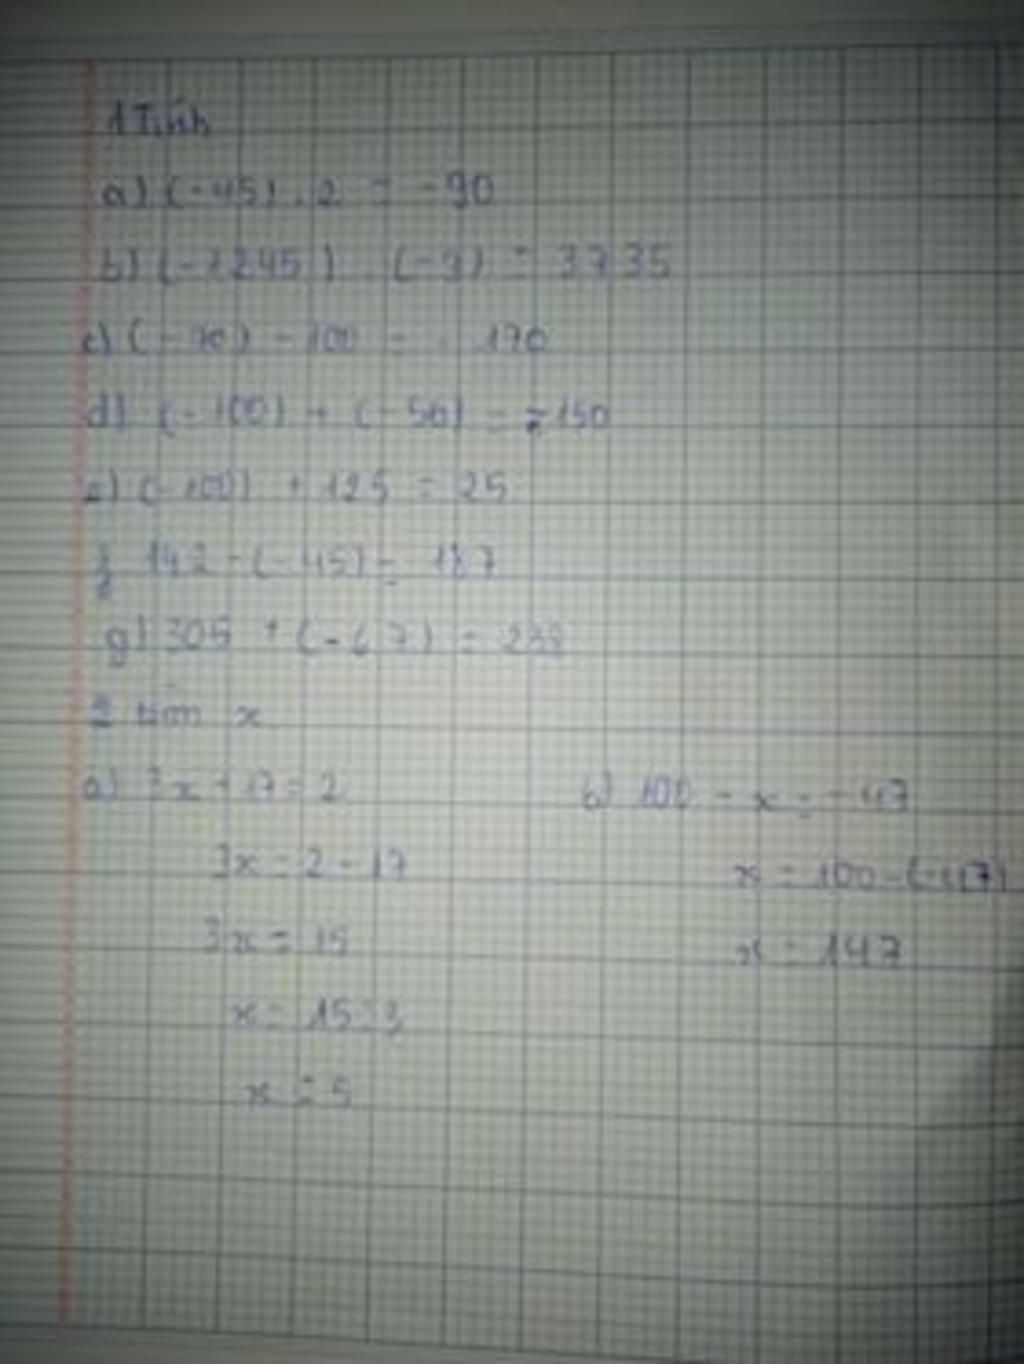 1 Tính
a) (-45) . 2 = -90
b) (-1245) . (-3) = 3735
c) (-70) - 100 = - 170
d) (-100) + (-50) = -150
e) (-100) + 125 = 25
f) 142 - (-45) = 187
g) 305 + (-67) = 238
2 tìm x
a) 3x + 17 = 2
3x = 2 - 17
3x = 15
x = 15 : 3
x = 5
b) 100 - x = -47
x = 100 - (-47)
x = 147